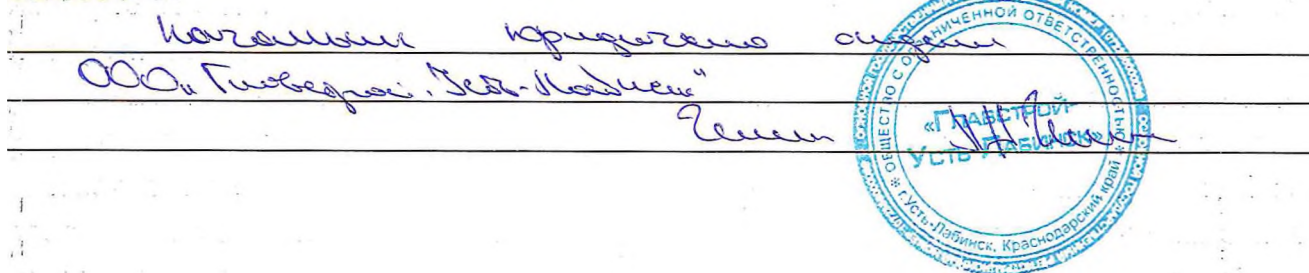 Начальник юридического отдела
ООО „Главстрой-Усть-Лабинск"
ОБЩЕСТВО С ОГРАНИЧЕННОЙ ОТВЕТСТВЕННОСТЬЮ
«ГЛАВСТРОЙ-
УСТЬ-ЛАБИНСК»
г.Усть-Лабинск, Краснодарский край